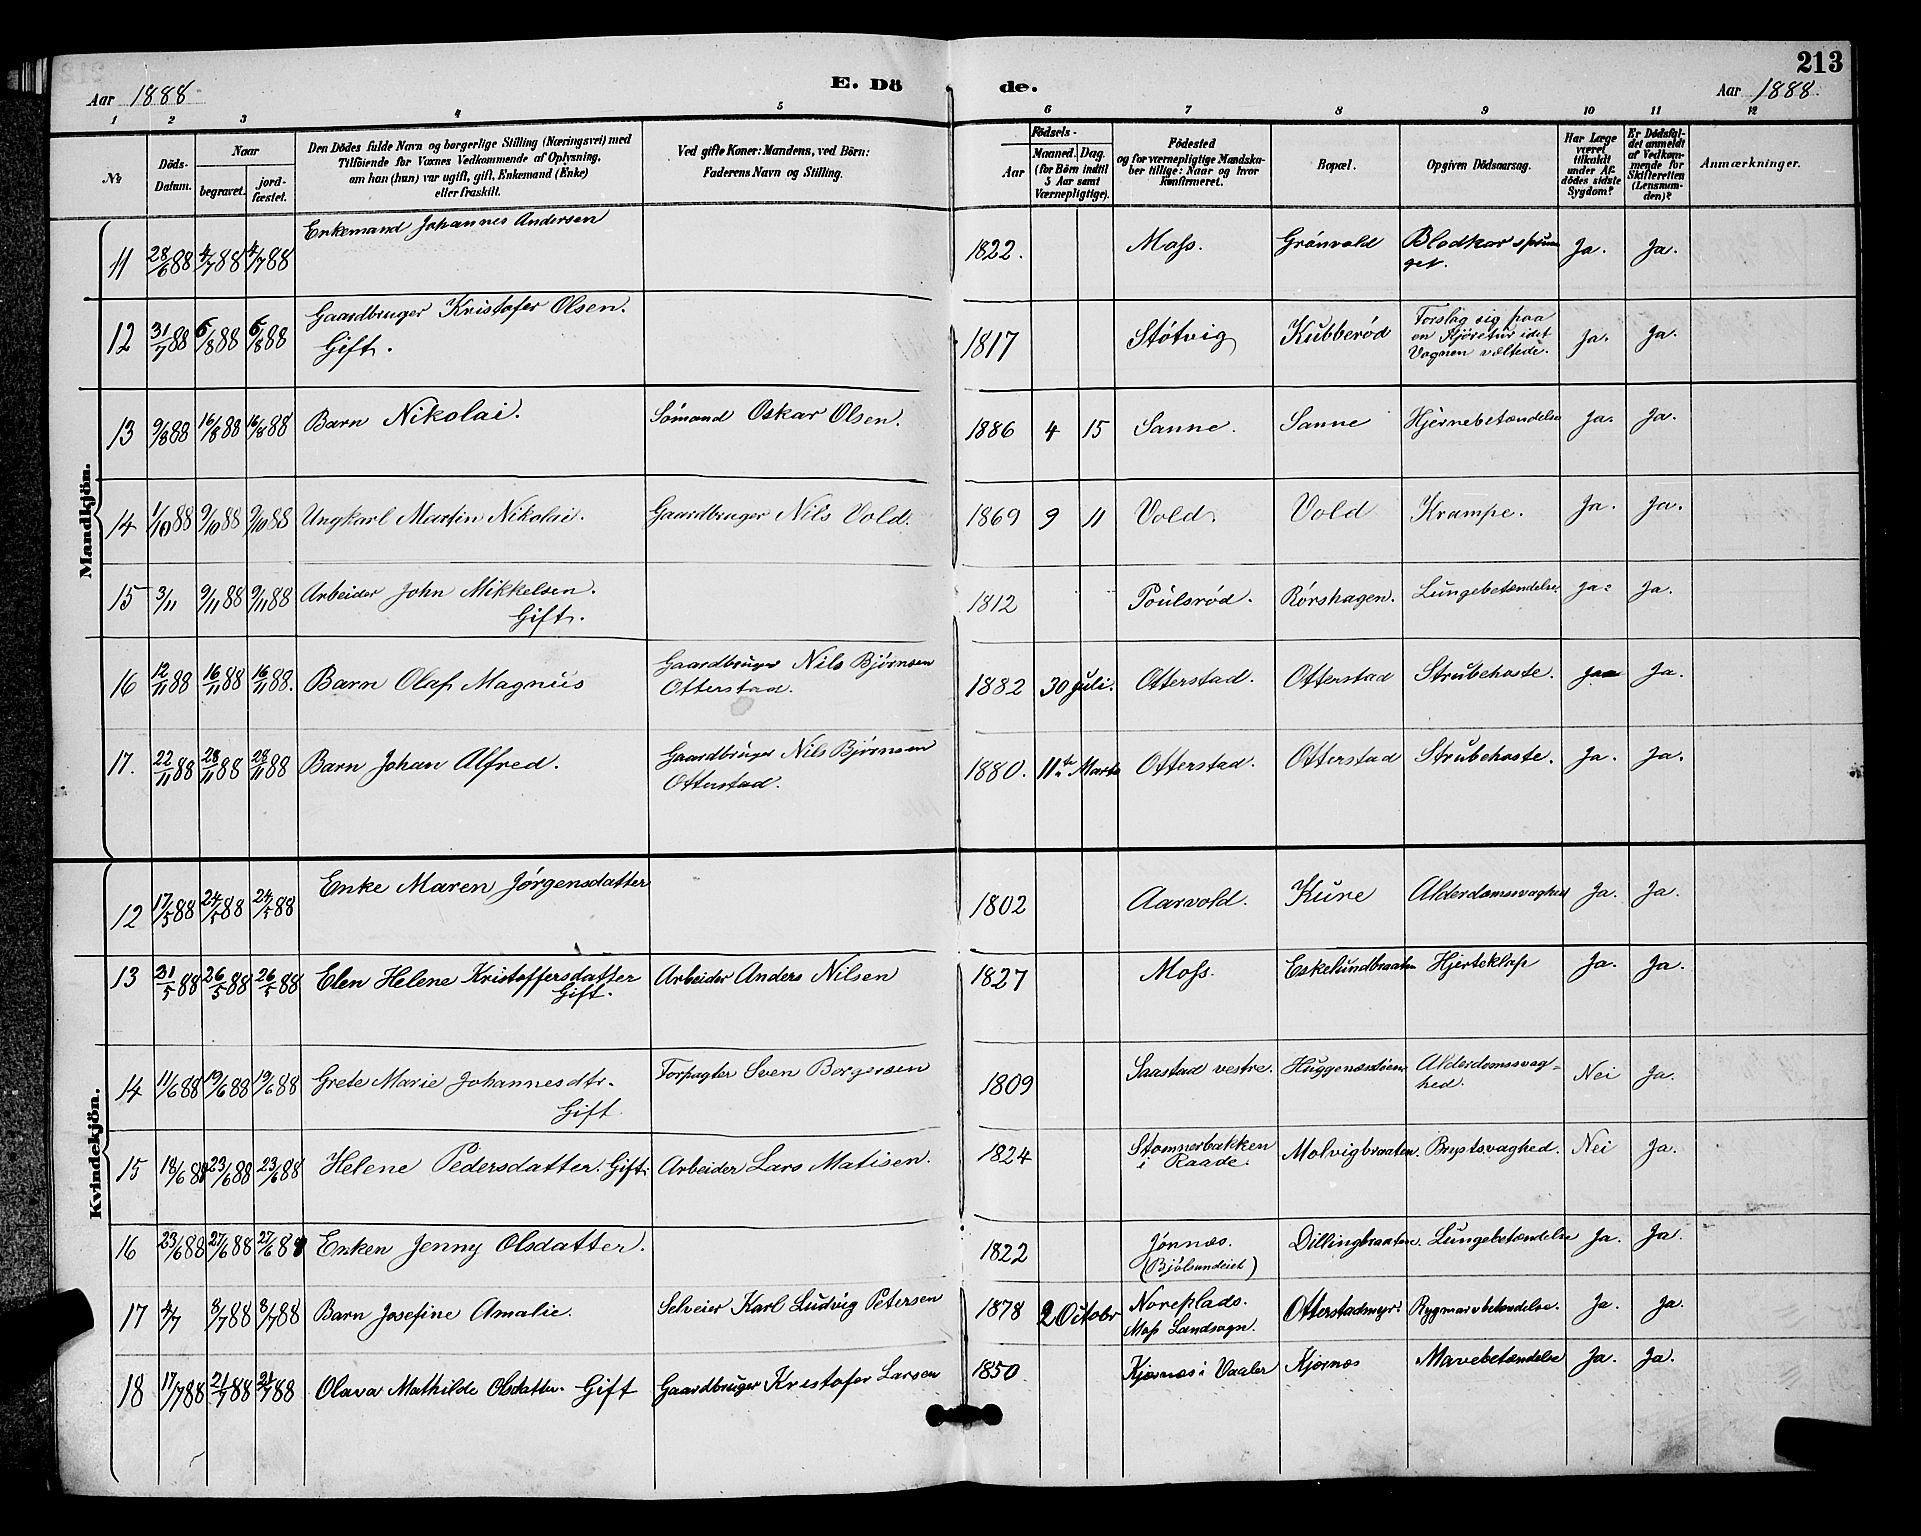 213
Aar 1888 E. Dö de. Aar 1888.
1 2 3 4 5 6 7 8 9 10 11 12
№
Döds-
Datum.
Naar
begravet.
jord-
fæstet.
Den Dödes fulde Navn og borgerlige Stilling (Næringsvei) med
Tilföiende for Voxnes Vedkommende af Oplysning,
om han (hun) var ugift, gift, Enkemand (Enke)
eller fraskilt.
Ved gifte Koner: Mandens, ved Börn:
Faderens Navn og Stilling.
Födsels-
Aar
Maaned. Dag.
(for Börn indtil
5 Aar samt
Værnepligtige).
Födested
og for værnepligtige Mandska-
ber tillige: Naar og hvor
konfirmeret.
Bopæl.
Opgiven Dödsaarsag.
Har Læge
været
tilkaldt
under Af-
dödes sidste
Sygdom?
Er Dödsfal-
det anmeldt
af Vedkom-
mende for
Skifteretten
(Lensman-
den)?
Anmærkninger.
Mandkjön.
11 28/6 88 4/7 88 4/7 88 Enkemand Johannes Andersen 1822. Moss. Grønvold Blodkar sprun
get. Ja. Ja.
12 31/7 88 6/8 88 6/8 88 Gaardbruger Kristofer Olsen.
Gift. 1817 Støtvig Kubberød Forslog sig paa
en Kjøretur idet
Vognen væltede. Ja. Ja.
13 9/8 88 16/8 88 16/8 88 Barn Nikolai. Sømand Oskar Olsen. 1886 4 15 Sanne. Sanne Hjernebetændelse Ja. Ja.
14 1/10 88 9/10 88 9/10 88 Ungkarl Martin Nikolai. Gaardbruger Nils Vold. 1869 9 11 Vold. Vold Krampe. Ja. Ja.
15 3/11 9/11 88 9/11 88 Arbeider John Mikkelsen.
Gift. 1812 Poulsrød. Rørshagen. Lungebetændelse. Ja. Ja.
16 12/11 88 16/11 88 16/11 88. Barn Olaf Magnus Gaardbruger Nils Bjørnsen
Otterstad. 1882 30 Juli. Otterstad. Otterstad Strubehoste. Ja Ja.
17. 22/11 88 28/11 88 28/11 88 Barn Johan Alfred. Gaardbruger Nils Bjørnsen
Otterstad. 1880. 11te Marts Otterstad. Otterstad Strubehoste. Ja. Ja.
Kvindekjön.
12 17/5 88 24/5 88 24/5 88 Enke Maren Jørgensdatter 1802 Aarvold. Kure Alderdomssvaghed Ja. Ja.
13 31/5 88 26/5 88 26/5 88 Elen Helene Kristoffersdatter
Gift. Arbeider Anders Nilsen 1827 Moss. Eskelundbraaten Hjerteklap Ja. Ja.
14 11/6 88 19/6 88 19/6 88 Grete Marie Johannesdtr.
Gift. Forpagter Sven Borgersen 1809 Saastad vestre. Huggenæsdiem Alderdomssvag-
hed. Nei Ja.
15 18/6 88 23/6 88 23/6 88 Helene Pedersdatter. Gift. Arbeider Lars Matisen. 1824 Stomnerbakken
i Raade. Molvigbraaten Brystsvaghed. Nei Ja.
16 23/6 88 27/6 88 27/6 88 Enken Jenny Olsdatter. 1822 Jønnæs.
(Bjølsundeiet) Dillingbraaten. Lungebetændelse Ja. Ja.
17 4/7 8/7 88 8/7 88 Barn Josefine Amalie. Selveier Karl Ludvig Petersen 1878 2 Octobr Noreplads.
Moss Landsogn. Otterstadmyr Rygmarvbetændelse. Ja. Ja.
18 17/7 88 21/7 88 21/7 88 Olava Mathilde Olsdatter. Gift Gaardbruger Kristofer Larsen 1850. Kjærnæs i Vaaler Kjærnæs Mavebetændelse Ja. Ja.